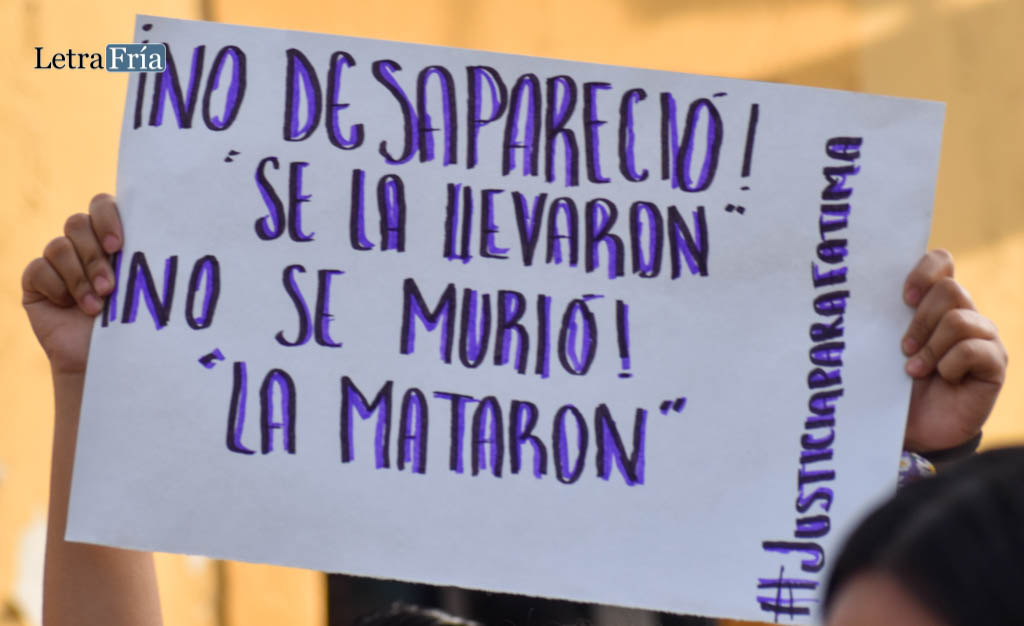 LetraFría
¡NO DESAPARECIÓ!
"SE LA LLEVARON"
¡NO SE MURIÓ!
"LA MATARON"
#JUSTICIAPARAFATIMA